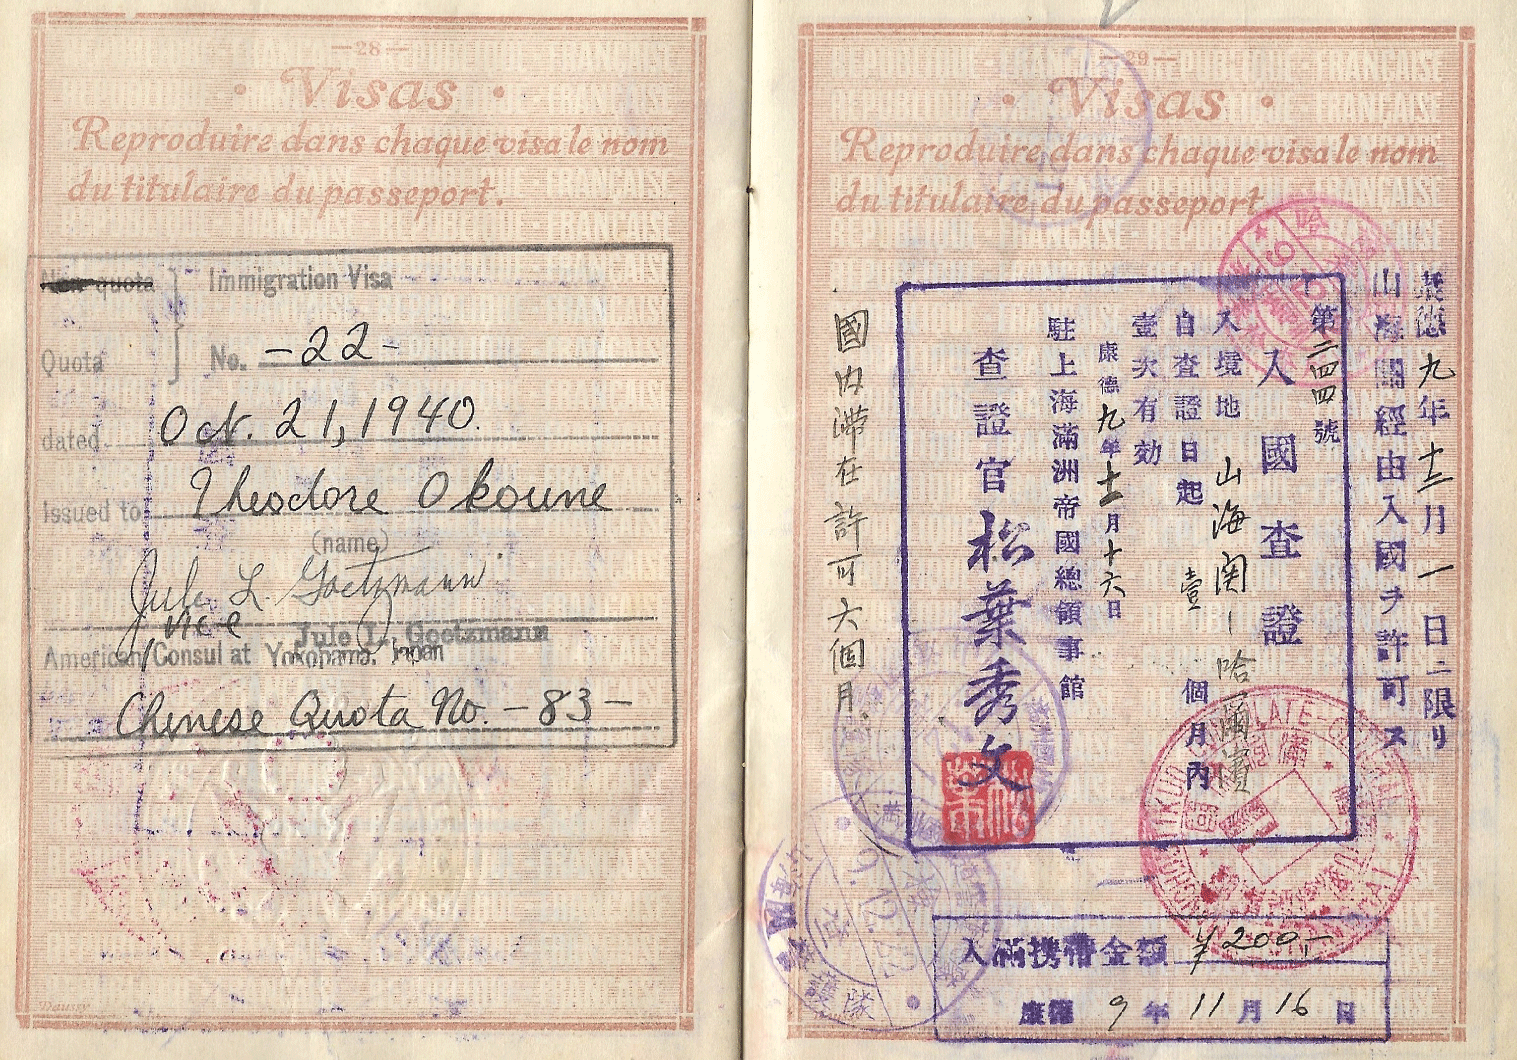 —28—
· Visas ·
Reproduire dans chaque visa le nom
du titulaire du passeport.
Non-quota Immigration Visa
Quota No. -22-
dated Oct. 21, 1940.
Issued to Theodore Okoune
(name)
Jule L. Goetzmann
Vice Jule L. Goetzmann
American Consul at Yokohama, Japan
Chinese Quota No. -83-
—29—
· Visas ·
Reproduire dans chaque visa le nom
du titulaire du passeport
康德九年十二月一日ニ限リ
山海關經由入國ヲ許可ス
第二四四號
入國査證
入境地 山海関-哈爾賓
自査證日起 壹個月內
壹次有効
康德九年十一月十六日
駐上海滿洲帝國總領事館
査證官 松葉秀文
國内滞在許可六個月.
入滿携帶金額 ¥200-
康德 9年11月16日
9.12.22
護隊